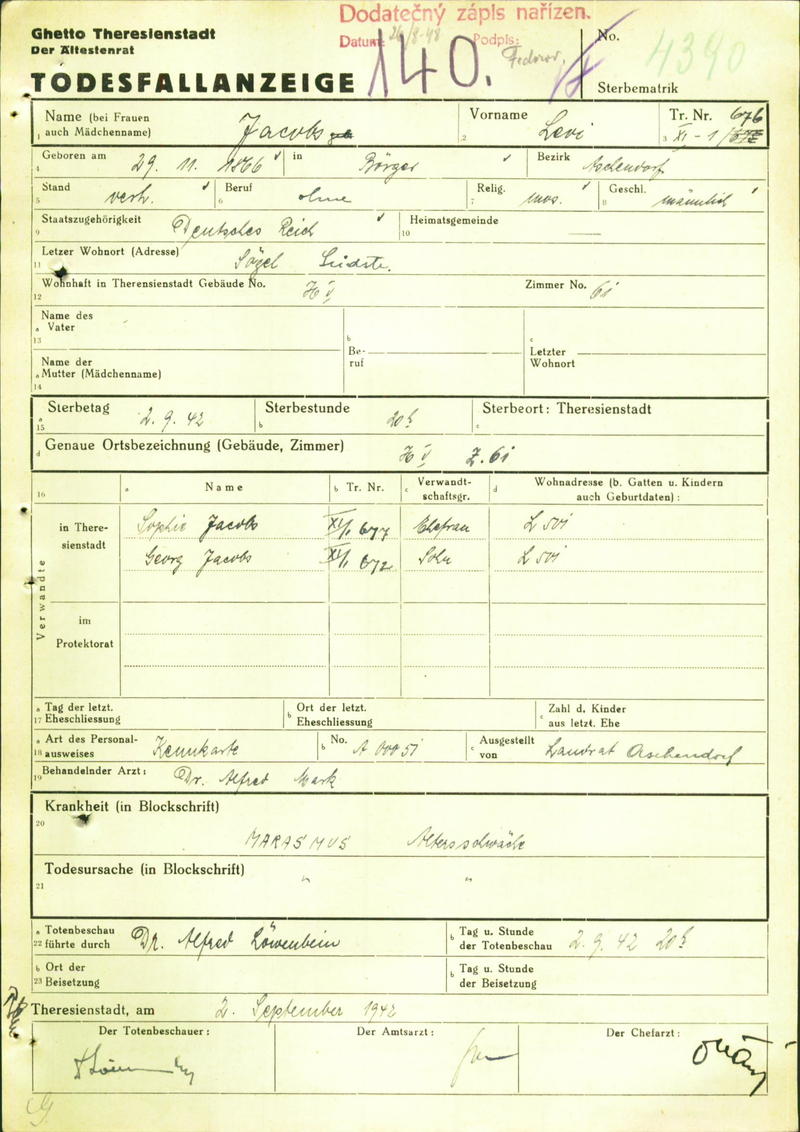 Dodatečný zápis nařízen.
Datum: 26/8-48 Podpis:
Ghetto Theresienstadt
Der Ältestenrat
TODESFALLANZEIGE
140.
No. 4390
Sterbematrik
Name (bei Frauen auch Mädchenname) Jacobs
1
Vorname Levi
2
Tr. Nr. 676
3 XI - 1/
Geboren am 29. 11. 1866 in Börger Bezirk Aschendorf
4
Stand verh. Beruf ohne Relig. mos. Geschl. männlich
5 6 7 8
Staatszugehörigkeit Deutsches Reich Heimatsgemeinde —
9 10
Letzer Wohnort (Adresse) Sögel Südstr.
11
Wohnhaft in Theresienstadt Gebäude No. H V Zimmer No. 61
12
Name des
a Vater
13
b
Be-
ruf
c
Letzter
Wohnort
Name der
a Mutter (Mädchenname)
14
a Sterbetag 2. 9. 42 b Sterbestunde 20h c Sterbeort: Theresienstadt
15
d Genaue Ortsbezeichnung (Gebäude, Zimmer) H V Z. 61
16 a Name b Tr. Nr. c Verwandtschaftsgr. d Wohnadresse (b. Gatten u. Kindern auch Geburtdaten):
Verwandte
in Theresienstadt
Sophie Jacobs XI/1 677 Ehefrau L 501
Georg Jacobs XI/1 672 Sohn L 501
im
Protektorat
a Tag der letzt. b Ort der letzt. c Zahl d. Kinder
17 Eheschliessung Eheschliessung aus letzt. Ehe
a Art des Personal- Kennkarte b No. A 00051 c Ausgestellt Landrat Aschendorf
18 ausweises von
Behandelnder Arzt: Dr. Alfred Mark
19
Krankheit (in Blockschrift)
20
MARASMUS Altersschwäche
Todesursache (in Blockschrift) " "
21
a Totenbeschau Dr. Alfred Löwenbein b Tag u. Stunde 2. 9. 42 20h
22 führte durch der Totenbeschau
b Ort der b Tag u. Stunde
23 Beisetzung der Beisetzung
Theresienstadt, am 2. September 1942
Der Totenbeschauer: Der Amtsarzt: Der Chefarzt: